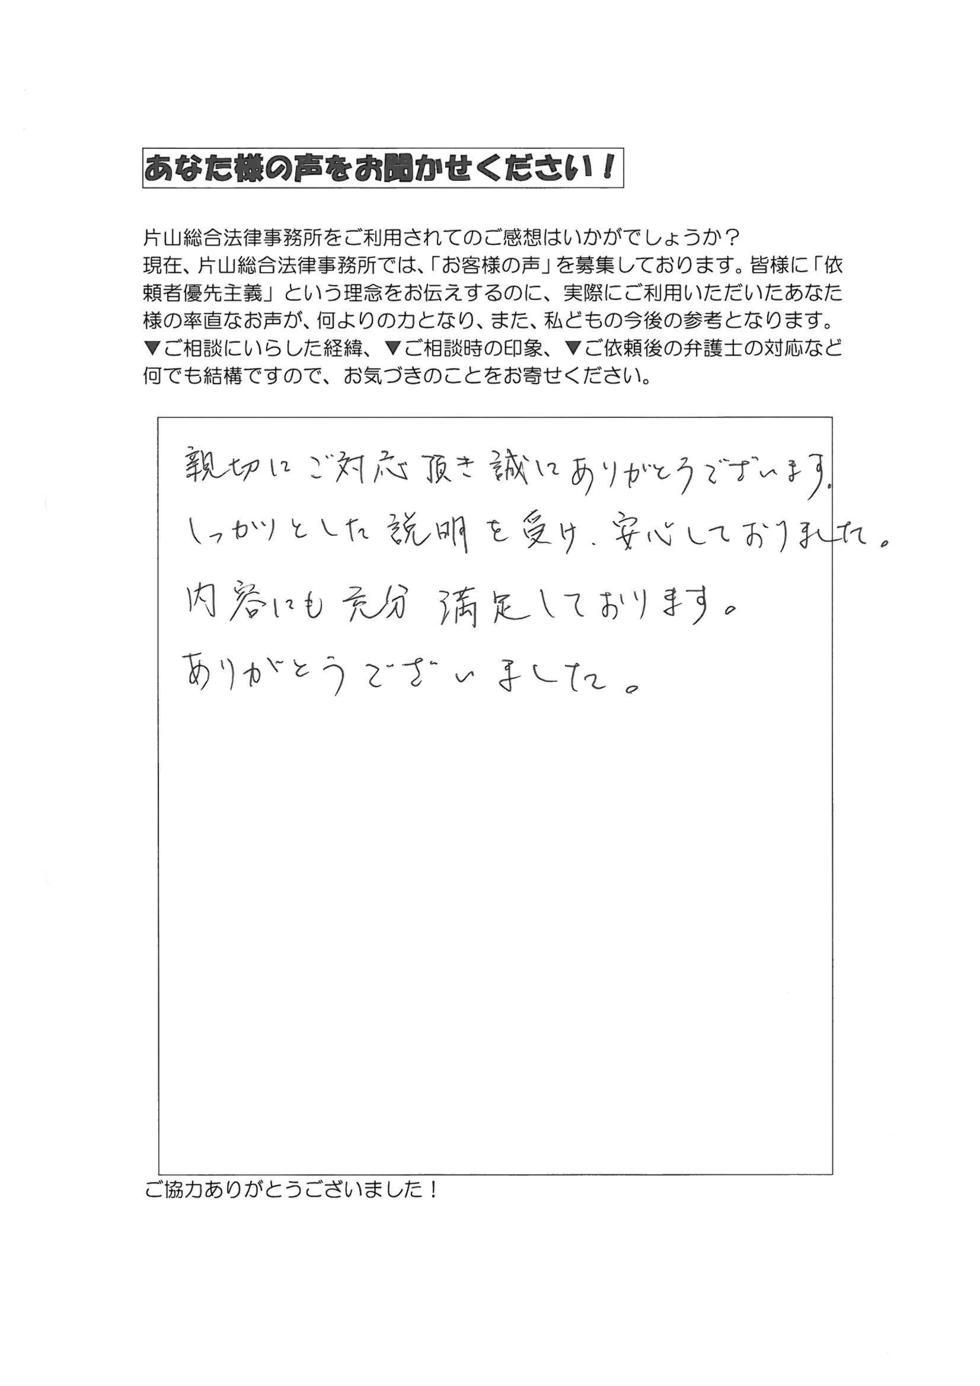 あなた様の声をお聞かせください！
片山総合法律事務所をご利用されてのご感想はいかがでしょうか？
現在、片山総合法律事務所では、「お客様の声」を募集しております。皆様に「依
頼者優先主義」という理念をお伝えするのに、実際にご利用いただいたあなた
様の率直なお声が、何よりの力となり、また、私どもの今後の参考となります。
▼ご相談にいらした経緯、▼ご相談時の印象、▼ご依頼後の弁護士の対応など
何でも結構ですので、お気づきのことをお寄せください。
親切にご対応頂き誠にありがとうございます.
しっかりとした説明を受け、安心しておりました。
内容にも充分満足しております。
ありがとうございました。
ご協力ありがとうございました！